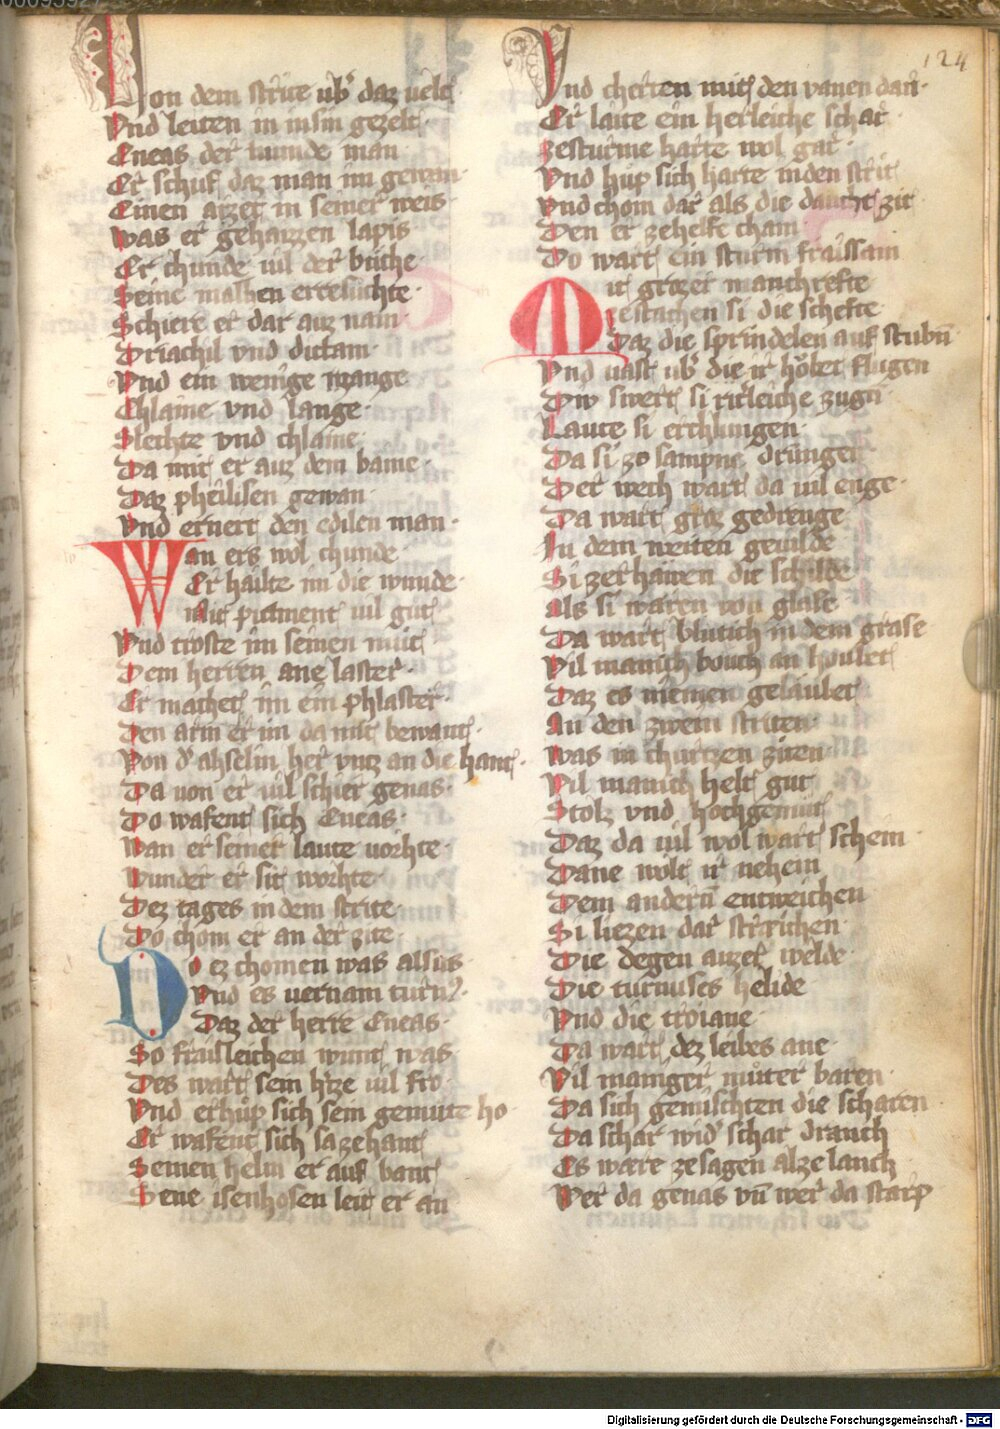 124
Von dem strite vb' daz velt
Vnd leiten in in sin gezelt
Eneas der wunde man
Er schuf daz man im gewan
Einen artzet in seiner weis
Was er gehaizzen lapis
Er chunde vil der büche
Seine mashen er ersuchte
Schiere er dar auz nam
Driachil vnd dictam
Vnd ein wenige zange
Chlaine vnd lange
Slechte vnd chlaine
Da mit er auz dem baine
Daz pheilisen gewan
Vnd ernert den edilen man
Wan ers wol chunde
Er hailte im die wunde
Mit pictment vil gut
Vnd troste im seinen mut
Dem herren ane laster
Er machet im ein phlaster
Den arm er im da mit bewant
Von d' ahselin her vntz an die hant
Da von er vil schier genas
Do wafent sich Eneas
Wan er seiner laute vorhte
Wunder er sit worhte
Dez tages in dem strite
Do chom er an der zite
Do ez chomen was alsus
Vnd es vernam turn9
Daz der herre Eneas
So fraisleichen wunt was
Des wart sein h'ze vil fro
Vnd erhup sich sein gemute ho
Er wafent sich sazehant
Seinen helm er auf bant
Seine isenhosen leit er an
Vnd cherten mit den vanen dan
Er laite ein herleiche schar
Zesturme harte wol gar
Vnd hup sich harte in den strit
Vnd chom dar als die daucht zit
Den er zehelfe cham
Do wart ein sturm fraissam
Mit grozer manchrefte
Zestachen si die schefte
Daz die sprindelen auf stubn̄
Vnd vast vb' die ir höbet flugen
Div swert si ritleiche zugn̄
Laute si erchlungen
Da si zo sampne drungen
Der wech wart da vil enge
Da wart groz gedrenge
In dem weiten gevilde
Si zerhaiwen die schilde
Als si waren von glase
Da wart blutich in dem grase
Vil manich bouch an houbet
Daz es niemen gelaubet
An den zwein striten
Was in churtzen ziten
Vil manich helt gut
Stolz vnd hochgemut
Daz da vil wol wart schein
Dane wolt ir nehein
Dem andern̄ entweichen
Si liezen dar strichen
Die degen auzer welde
Die turnuses helide
Vnd die troiane
Da wart dez leibes ane
Vil maniger muter baren
Da sich gemischten die scharen
Da schar wid' schar dranch
Es ware ze sagen alze lanch
Wer da genas vn̄ wer da starp
Digitalisierung gefördert durch die Deutsche Forschungsgemeinschaft - DFG